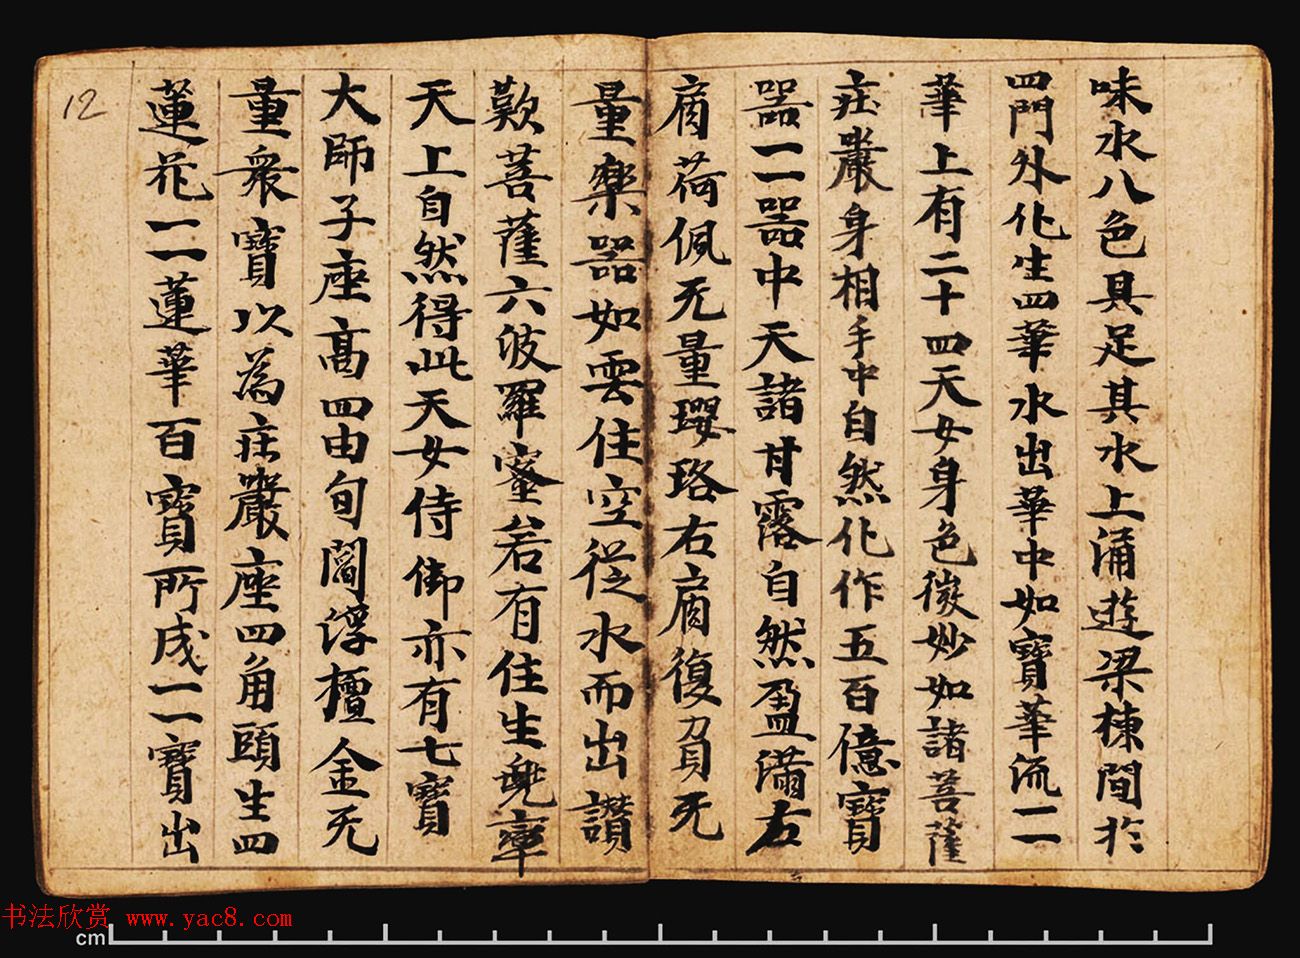 味水八色具足其水上涌遊梁棟間於
四門外化生四華水出華中如寶華流一一
華上有二十四天女身色微妙如諸菩薩
莊嚴身相手中自然化作五百億寶
器一一器中天諸甘露自然盈滿左
肩荷佩无量瓔珞右肩復負无
量樂器如雲住空從水而出讚
歎菩薩六波羅蜜若有住生兜率
天上自然得此天女侍御亦有七寶
大師子座高四由旬閻浮檀金无
量衆寶以為莊嚴座四角頭生四
蓮花一一蓮華百寶所成一一寶出
12
书法欣赏 www.yac8.com
cm